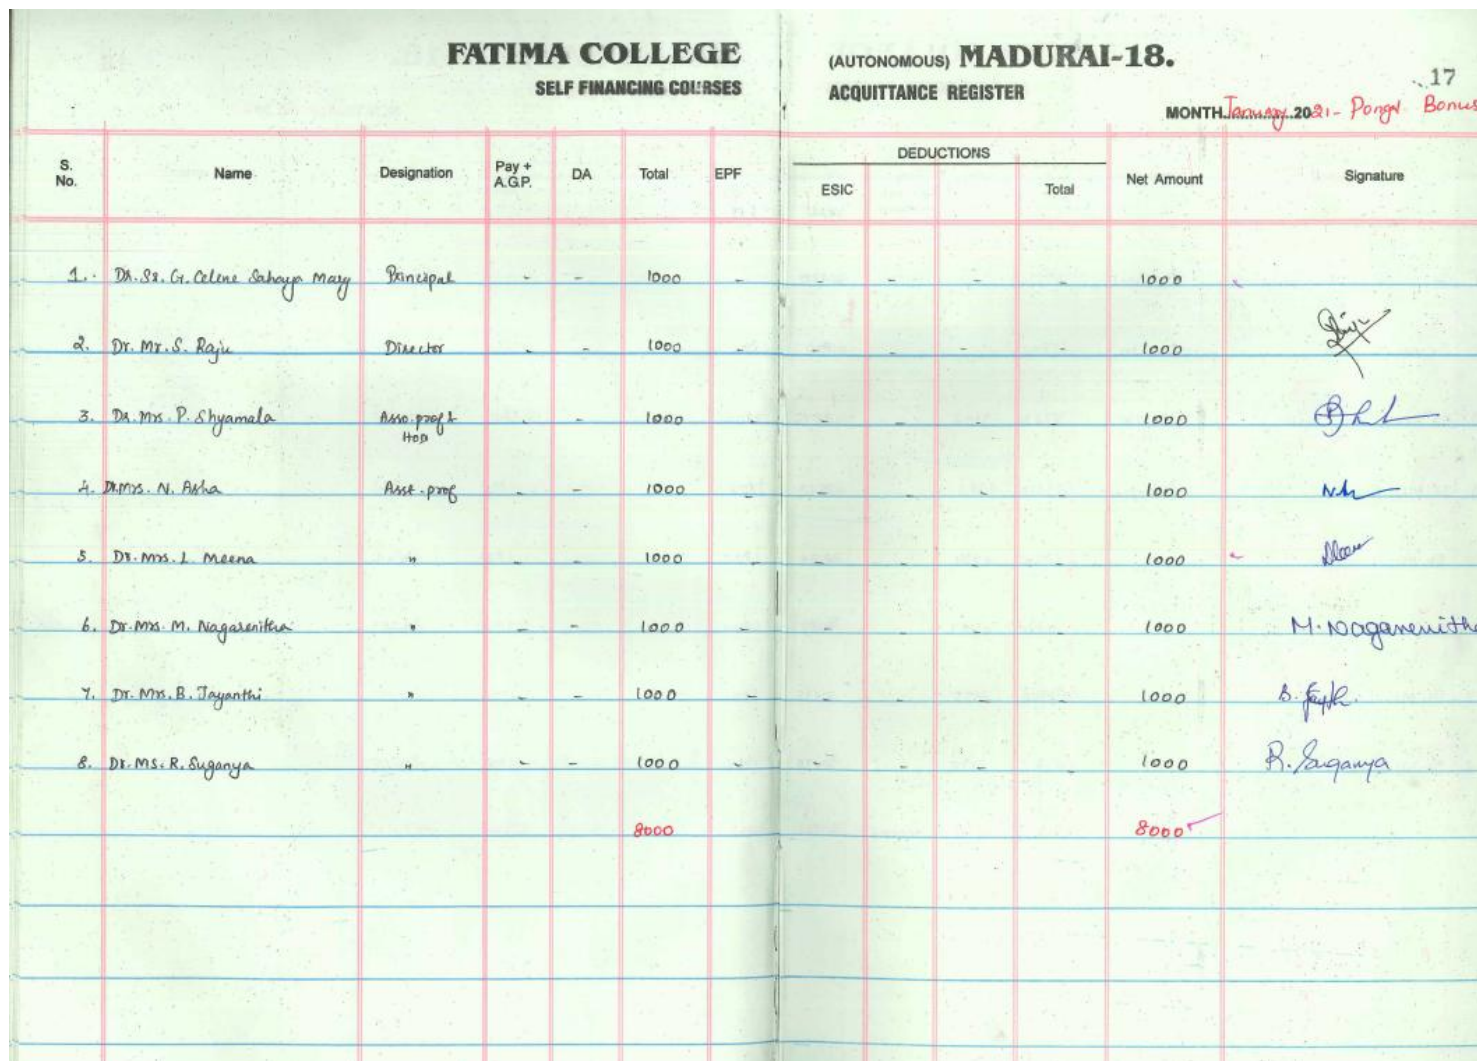 FATIMA COLLEGE (AUTONOMOUS) MADURAI-18.
SELF FINANCING COURSES ACQUITTANCE REGISTER
17
MONTH January 2021- Pongal Bonus
S. No. Name Designation Pay + A.G.P. DA Total EPF DEDUCTIONS ESIC Total Net Amount Signature
1. Dr. Sr. G. Celene Sahaya Mary Principal - - 1000 - - - - - 1000
2. Dr. Mr. S. Raju Director - - 1000 - - - - - 1000
3. Dr. Mrs. P. Shyamala Asso. prof & HOD - - 1000 - - - - - 1000
4. Dr. Mrs. N. Asha Asst. prof - - 1000 - - - - - 1000
5. Dr. Mrs. L. Meena " - - 1000 - - - - - 1000
6. Dr. Mrs. M. Nagarenitha " - - 1000 - - - - - 1000 M. Naganenitha
7. Dr. Mrs. B. Jayanthi " - - 1000 - - - - - 1000
8. Dr. Ms. R. Suganya " - - 1000 - - - - - 1000 R. Suganya
8000 8000